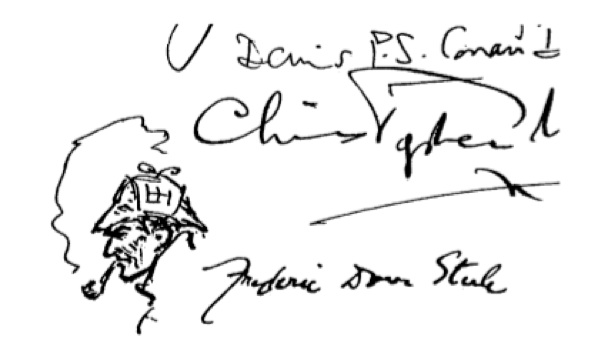 Denis P.S. Conan D
Christopher
Frederic Dorr Steele